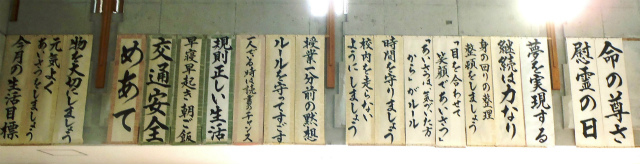 命の尊さ
慰霊の日
夢を実現する
継続は力なり
身の回りの整理
整頓をしましょう
「目を合わせて
笑顔であいさつ」
「あいさつは、気づいた方
から」がルール
時間を守りましょう
校内を走らない
ようにしましょう
授業一分前の黙想
ルールを守ってすごす
一人でいる時は読書のチャンス
規則正しい生活
早寝早起き朝ご飯
交通安全
めあて
物を大切にしましょう
元気よく
あいさつをしましょう
今月の生活目標